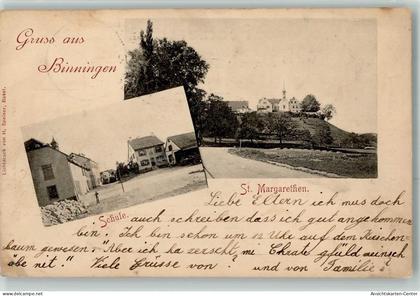 Gruss aus
Binningen
Lichtdruck von H. Besson, Basel.
St. Margarethen.
Schule.
Liebe Eltern ich mus doch
auch schreiben dass ich gut angekommen
bin. Ich bin schon um 12 Uhr auf dem Kirschen-
baum gewesen. "Aber ich ha zerscht mi Chrabe gfüld
äbe nit!" Viele Grüsse von und von Familie
www.ansichtskarten-center.de
Ansichtskarten-Center